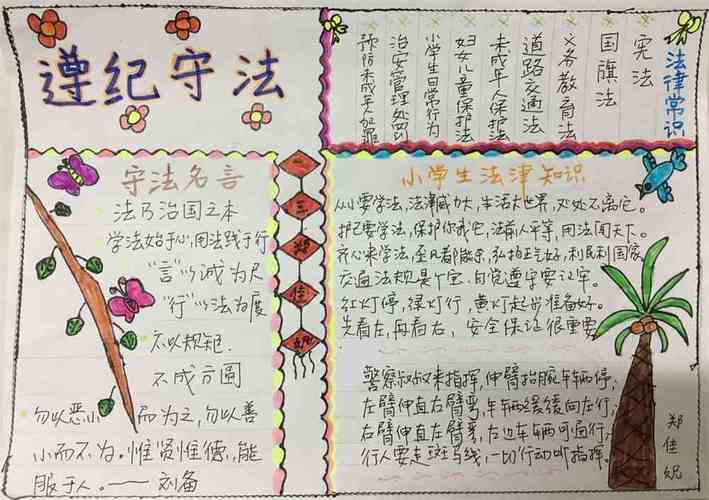 遵纪守法
法律常识
宪法
国旗法
义务教育法
道路交通法
未成年人保护法
妇女儿童保护法
小学生日常行为
治安管理处罚
预防未成年人犯罪
守法名言
法乃治国之本
学法始于心,用法践于行
“言”以诚为尺
“行”以法为度
不以规矩.
不成方圆
勿以恶小 而为之,勿以善
小而不为。惟贤惟德,能
服于人。——刘备
二
三
郑
佳
妮
小学生法律知识
从小要学法,法律威力大,生活大世界,处处不离它。
护己要学法,保护你我它,法前人平等,用法闯天下。
齐心来学法,至凡都敞亲,弘扬正气好,利民利国家
交通法规是个宝.自觉遵守要记牢。
红灯停,绿灯行,黄灯起步准备好。
先看左,再看右,安全保证很重要
警察叔叔来指挥,伸臂抬腕车辆停,
左臂伸直右臂弯,车辆缓缓向左行,
右臂伸直左臂弯,右边车辆可通行,
行人要走斑马线,一切行动听指挥。
郑佳妮